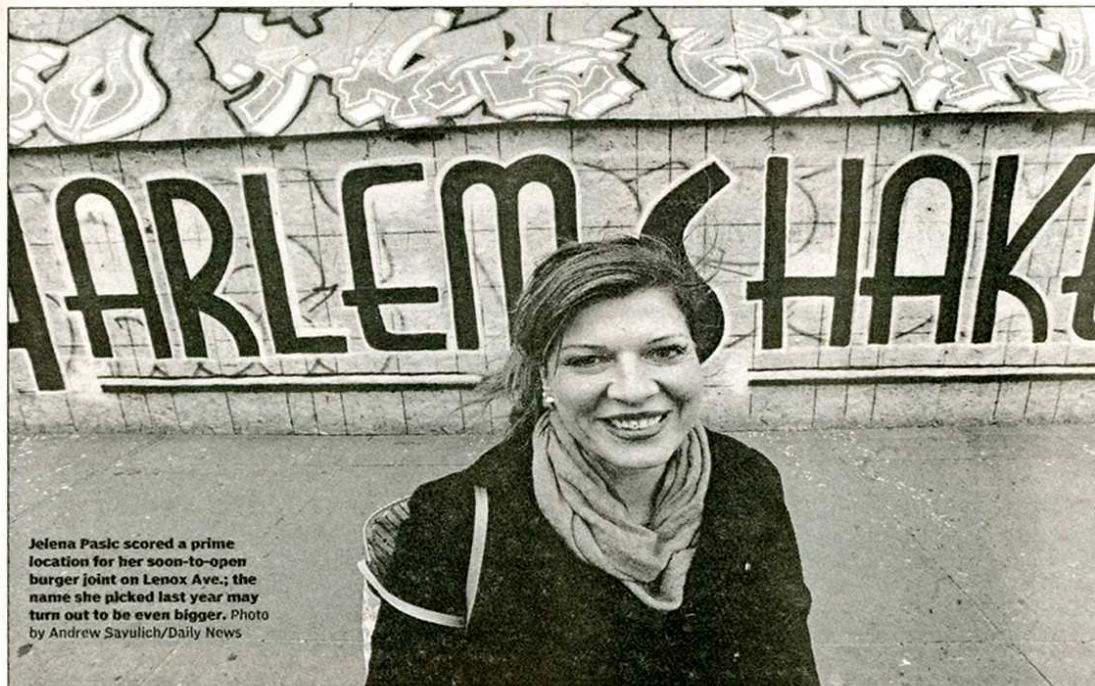 HARLEM SHAKE
Jelena Pasic scored a prime
location for her soon-to-open
burger joint on Lenox Ave.; the
name she picked last year may
turn out to be even bigger. Photo
by Andrew Savulich/Daily News